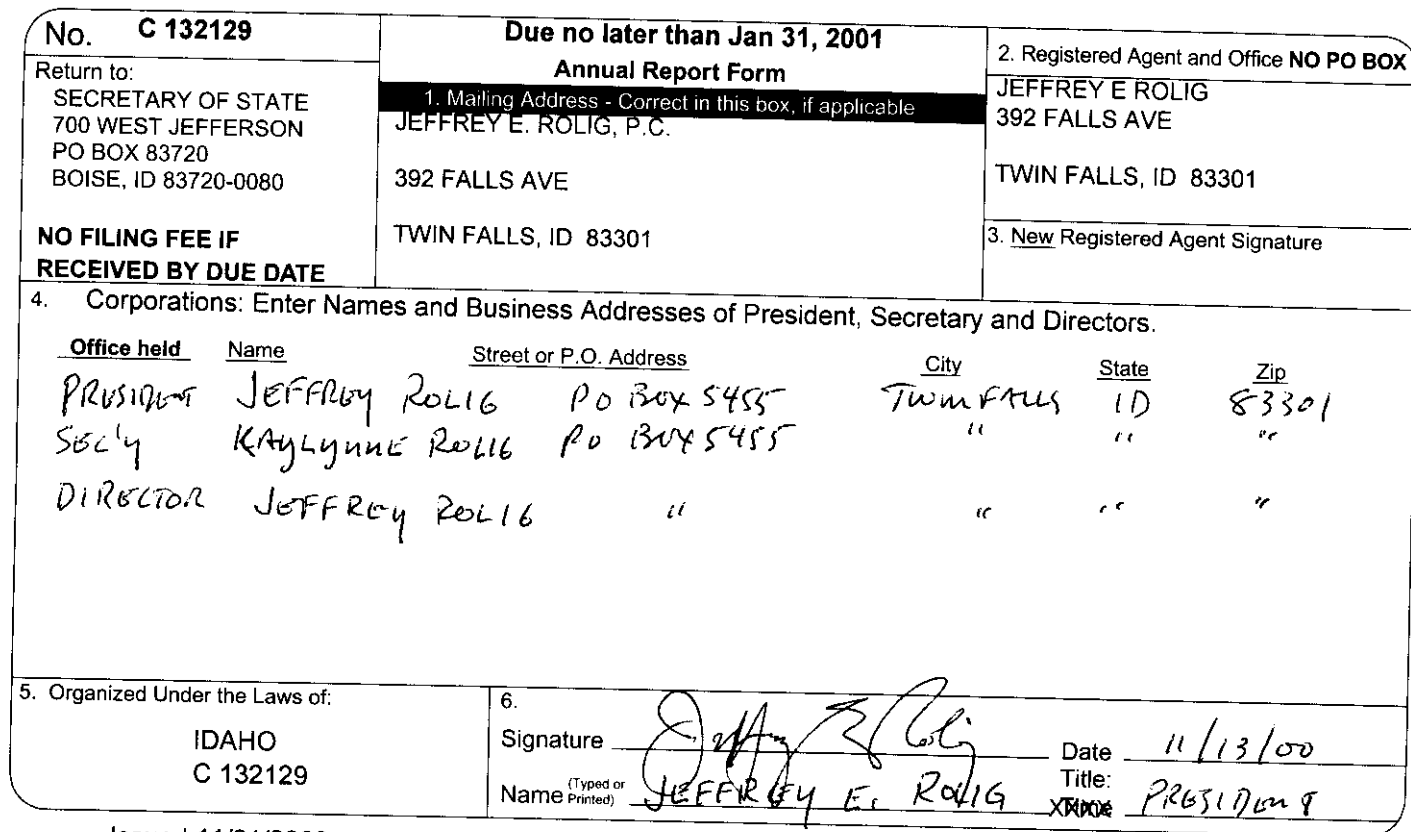 No. C 132129
Return to:
SECRETARY OF STATE
700 WEST JEFFERSON
PO BOX 83720
BOISE, ID 83720-0080
NO FILING FEE IF
RECEIVED BY DUE DATE
Due no later than Jan 31, 2001
Annual Report Form
1. Mailing Address - Correct in this box, if applicable
JEFFREY E. ROLIG, P.C.
392 FALLS AVE
TWIN FALLS, ID 83301
2. Registered Agent and Office NO PO BOX
JEFFREY E ROLIG
392 FALLS AVE
TWIN FALLS, ID 83301
3. New Registered Agent Signature
4. Corporations: Enter Names and Business Addresses of President, Secretary and Directors.
Office held Name Street or P.O. Address City State Zip
PRESIDENT JEFFREY ROLIG PO BOX 5455 TWIN FALLS ID 83301
SEC'y KAYLYNNE ROLIG PO BOX 5455 " " "
DIRECTOR JEFFREY ROLIG " " " "
5. Organized Under the Laws of:
IDAHO
C 132129
6.
Signature Jeffrey E Rolig Date 11/13/00
Name (Typed or Printed) JEFFREY E. ROLIG Title: PRESIDENT